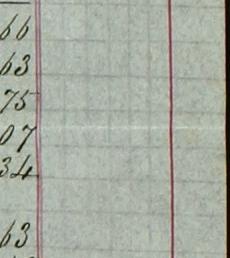 66
63
75
07
34
63